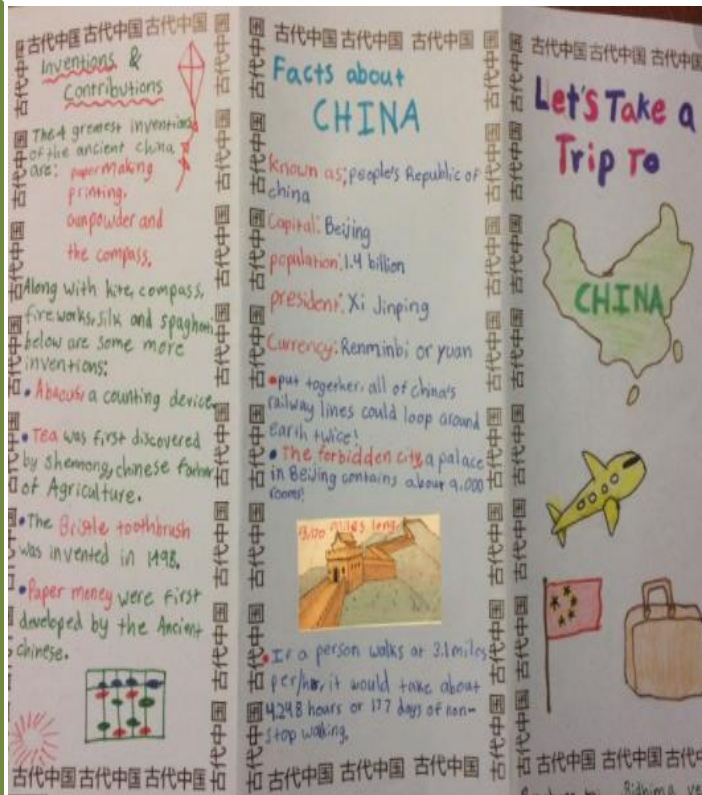 古代中国 古代中国 古代中国
Inventions &
Contributions
The 4 greatest inventions
of the ancient china
are: papermaking
printing,
gunpowder and
the compass.
Along with kite, compass,
fireworks, silk and spaghetti
below are some more
inventions:
• Abacus, a counting device.
• Tea was first discovered
by Shennong, chinese father
of Agriculture.
• The Bristle toothbrush
was invented in 1498.
• Paper money were first
developed by the Ancient
chinese.
古代中国 古代中国 古代中国
古代中国 古代中国 古代中国
Facts about
CHINA
Known as; people's Republic of
china
Capital: Beijing
population: 1.4 billion
president: Xi Jinping
Currency: Renminbi or yuan
• put together, all of china's
railway lines could loop around
earth twice!
• The forbidden city, a palace
in Beijing contains about 9,000
rooms!
miles long
• If a person walks at 3.1 miles
per/hr, it would take about
4248 hours or 177 days of non-
stop walking.
古代中国 古代中国 古代中国
古代中国 古代中国 古代中国
Let's Take a
Trip To
CHINA
古代中国 古代中国 古代中国
Ridhima
古代中国 古代中国 古代中国 古代中国 古代中国 古代中国
古代中国 古代中国 古代中国 古代中国 古代中国 古代中国
古代中国 古代中国 古代中国 古代中国 古代中国 古代中国
古代中国 古代中国 古代中国 古代中国 古代中国 古代中国